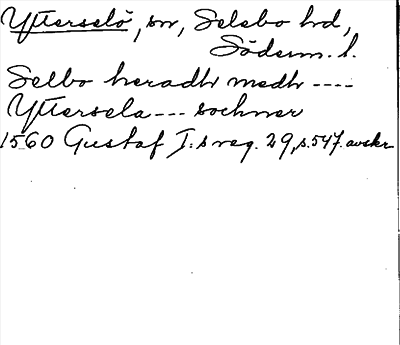 Ytterselö, sn, Selebo hd,
Söderm. l.
Selbo heradh medh ----
Yttersela --- sochner
1560 Gustaf I:s reg. 29, s. 547. avskr.